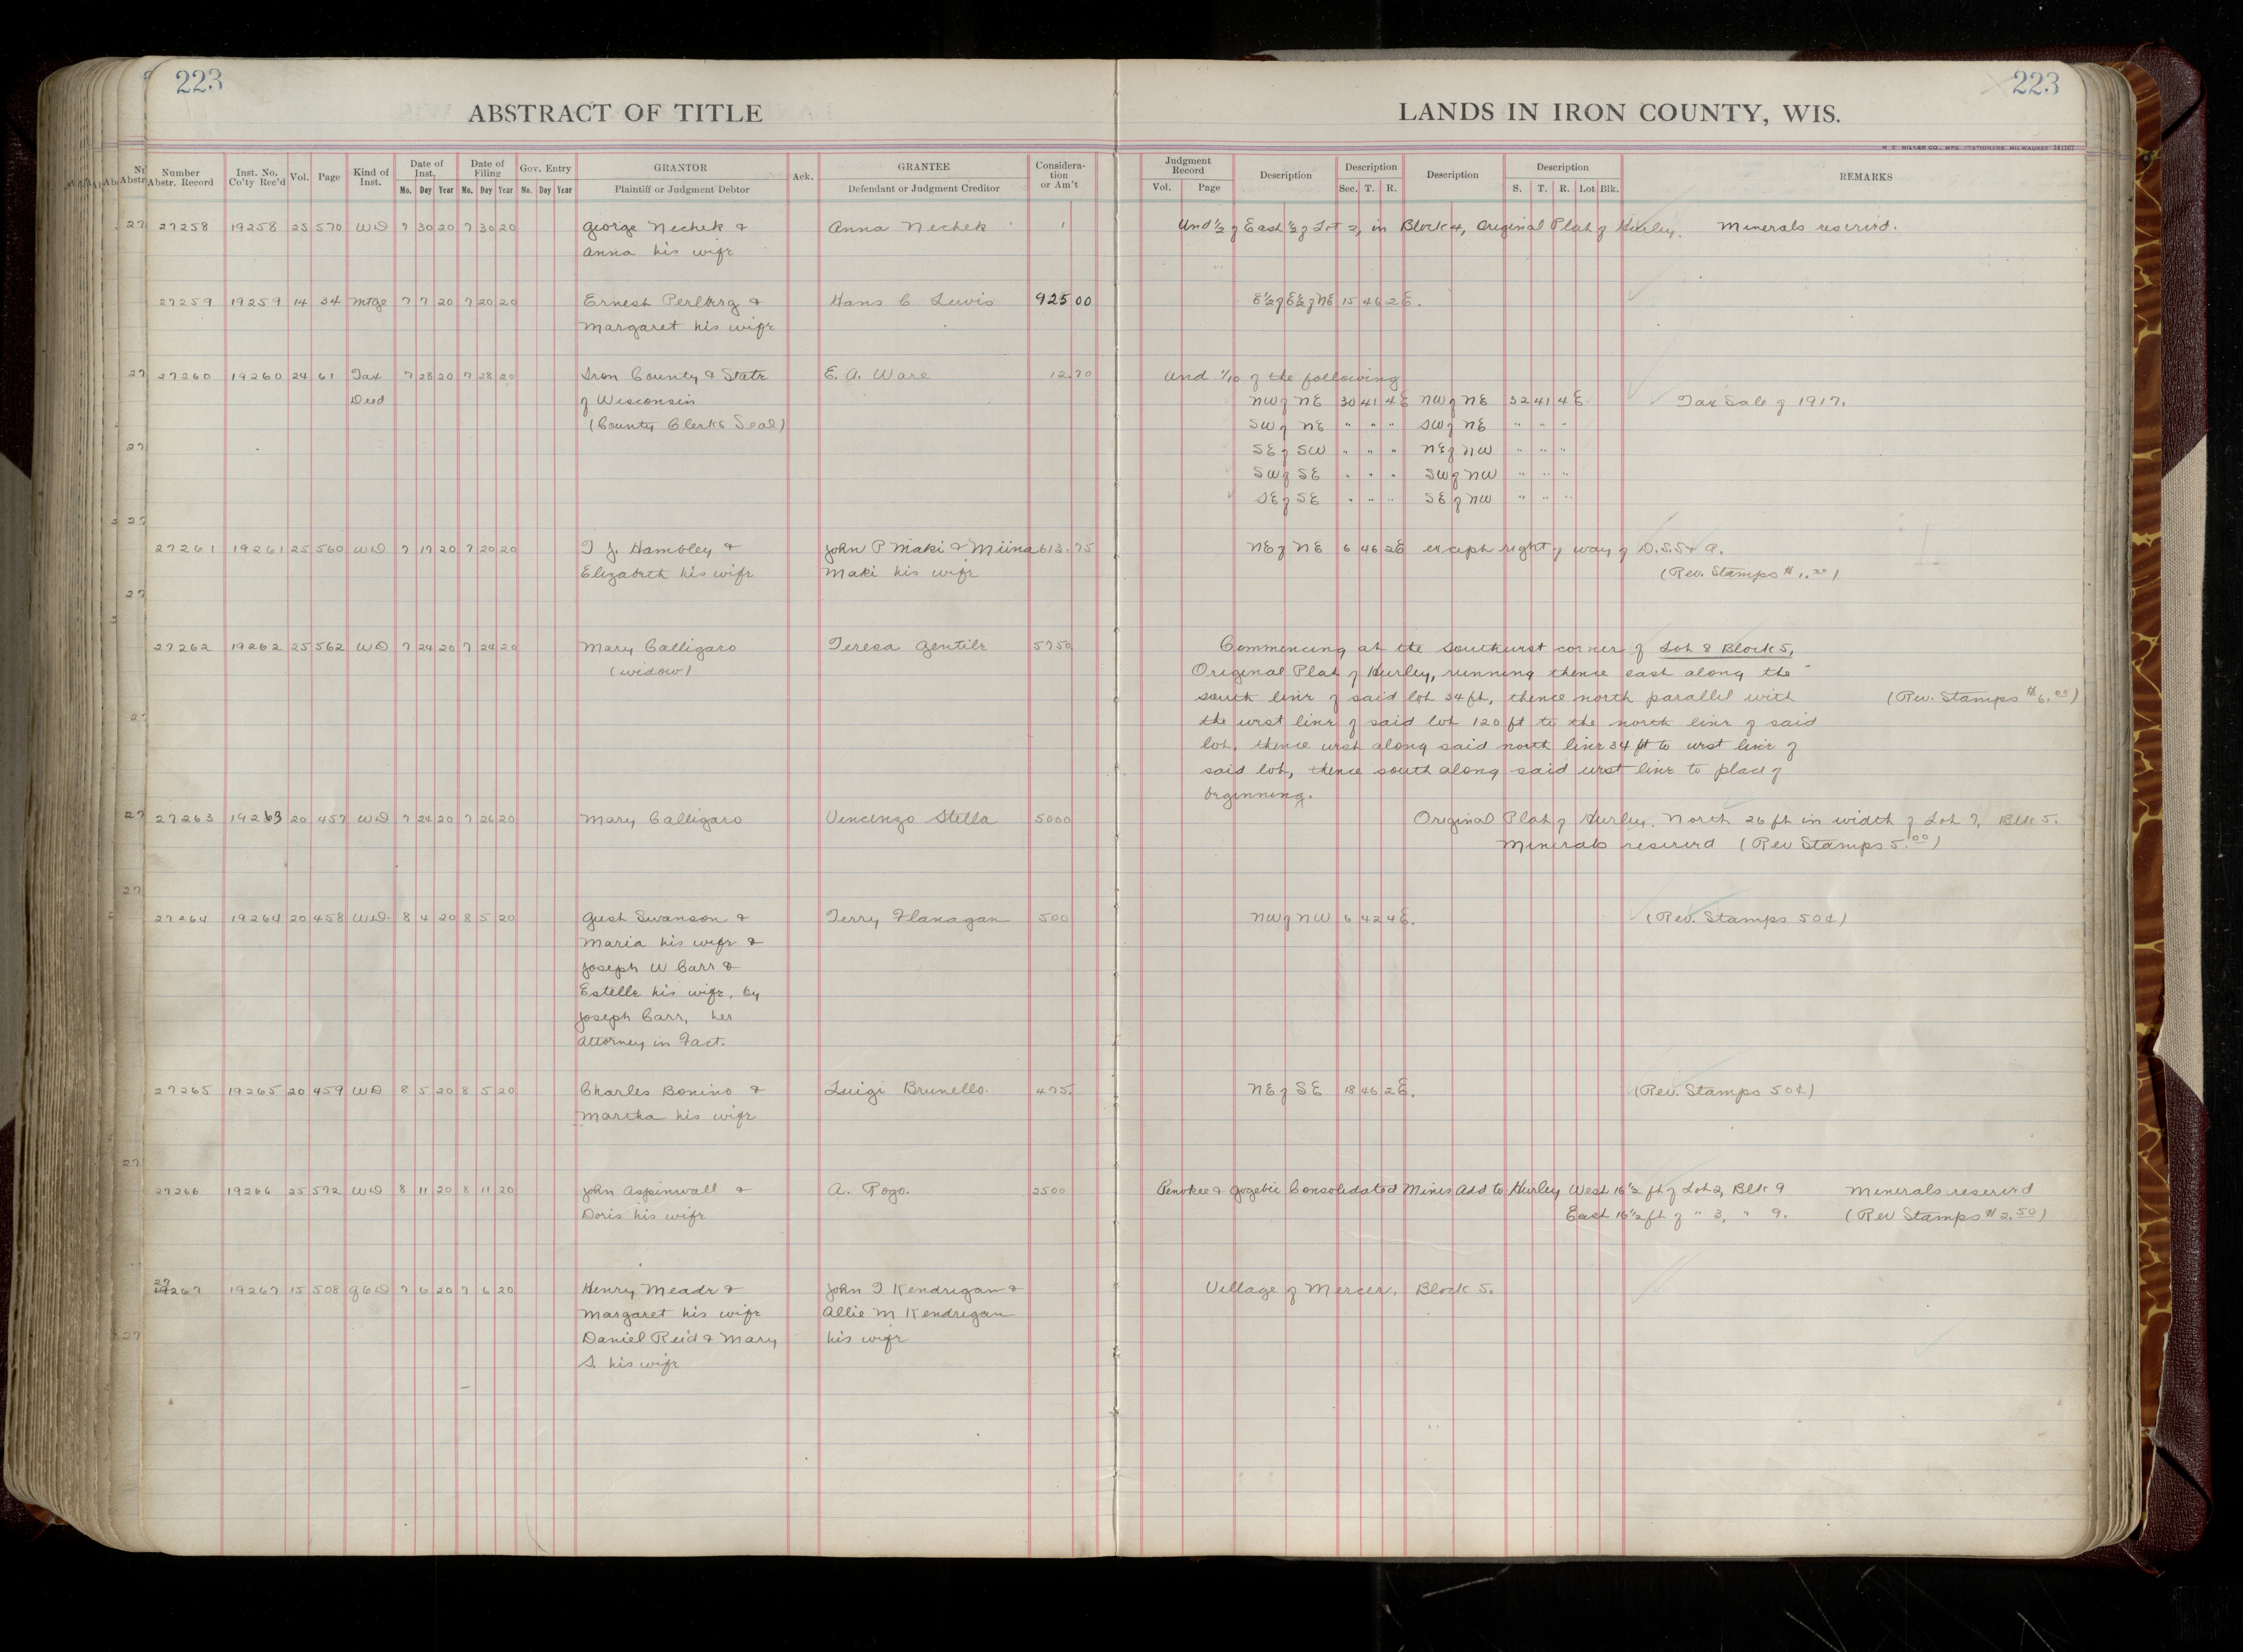 223
223
ABSTRACT OF TITLE
LANDS IN IRON COUNTY, WIS.
H. E. MILLER CO., MFG. STATIONERS, MILWAUKEE
Number Abstr. Record | Inst. No. Co'ty Rec'd | Vol. | Page | Kind of Inst. | Date of Inst. Mo. Day Year | Date of Filing Mo. Day Year | Gov. Entry Mo. Day Year | GRANTOR Plaintiff or Judgment Debtor | Ack. | GRANTEE Defendant or Judgment Creditor | Considera-tion or Am't | Judgment Record Vol. Page | Description | Description Sec. T. R. | Description | Description S. T. R. Lot Blk. | REMARKS
27258 19258 25 570 WD 7 30 20 7 30 20 George Nechek & Anna Nechek 1 Und ½ of East ½ of Lot 2, in Block 4, Original Plat of Hurley. Minerals reserved.
Anna his wife
27259 19259 14 34 Mtge 7 7 20 7 20 20 Ernest Perlberg & Hans C Lewis 925 00 E½ of E½ of NE 15 46 2E.
Margaret his wife
27260 19260 24 61 Tax 7 28 20 7 28 20 Iron County & State E. A. Ware 12.70 Und 1/10 of the following
Deed of Wisconsin NW of NE 30 41 4E NW of NE 32 41 4E Tax Sale of 1917.
(County Clerks Seal) SW of NE " " " SW of NE " " "
SE of SW " " " NE of NW " " "
SW of SE " " " SW of NW " " "
SE of SE " " " SE of NW " " "
27261 19261 25 560 WD 7 17 20 7 20 20 T J. Hambley & John P Maki & Miina 613.75 NE of NE 6 46 2E except right of way of D.S.S & A.
Elizabeth his wife Maki his wife (Rev. Stamps $1.00)
27262 19262 25 562 WD 7 24 20 7 24 20 Mary Calligaro Teresa Gentile 5750 Commencing at the southwest corner of Lot 8 Block 5,
(widow) Original Plat of Hurley, running thence east along the
south line of said lot 34 ft, thence north parallel with (Rev. Stamps $6.00)
the west line of said lot 120 ft to the north line of said
lot, thence west along said north line 34 ft to west line of
said lot, thence south along said west line to place of
beginning.
27263 19263 20 457 WD 7 24 20 7 26 20 Mary Calligaro Vincenzo Stella 5000 Original Plat of Hurley. North 26 ft in width of Lot 7, Blk 5.
Minerals reserved (Rev Stamps 5.00)
27264 19264 20 458 WD. 8 4 20 8 5 20 Gust Swanson & Terry Flanagan 500 NW of NW 6 42 4E. (Rev. Stamps 50¢)
Maria his wife &
Joseph W Carr &
Estelle his wife, by
Joseph Carr, her
Attorney in Fact.
27265 19265 20 459 WD 8 5 20 8 5 20 Charles Bonino & Luigi Brunello. 475. NE of SE 18 46 2E. (Rev. Stamps 50¢)
Martha his wife
27266 19266 25 572 WD 8 11 20 8 11 20 John Aspinwall & A. Pogo. 2500 Penokee & Gogebic Consolidated Mines Add to Hurley West 16½ ft of Lot 2, Blk 9 Minerals reserved
Doris his wife East 16½ ft of " 3, " 9. (Rev Stamps $2.50)
27267 19267 15 508 QCD 7 6 20 7 6 20 Henry Meade & John T Kendrigan & Village of Mercer. Block 5.
Margaret his wife Allie M Kendrigan
Daniel Reid & Mary his wife
S. his wife